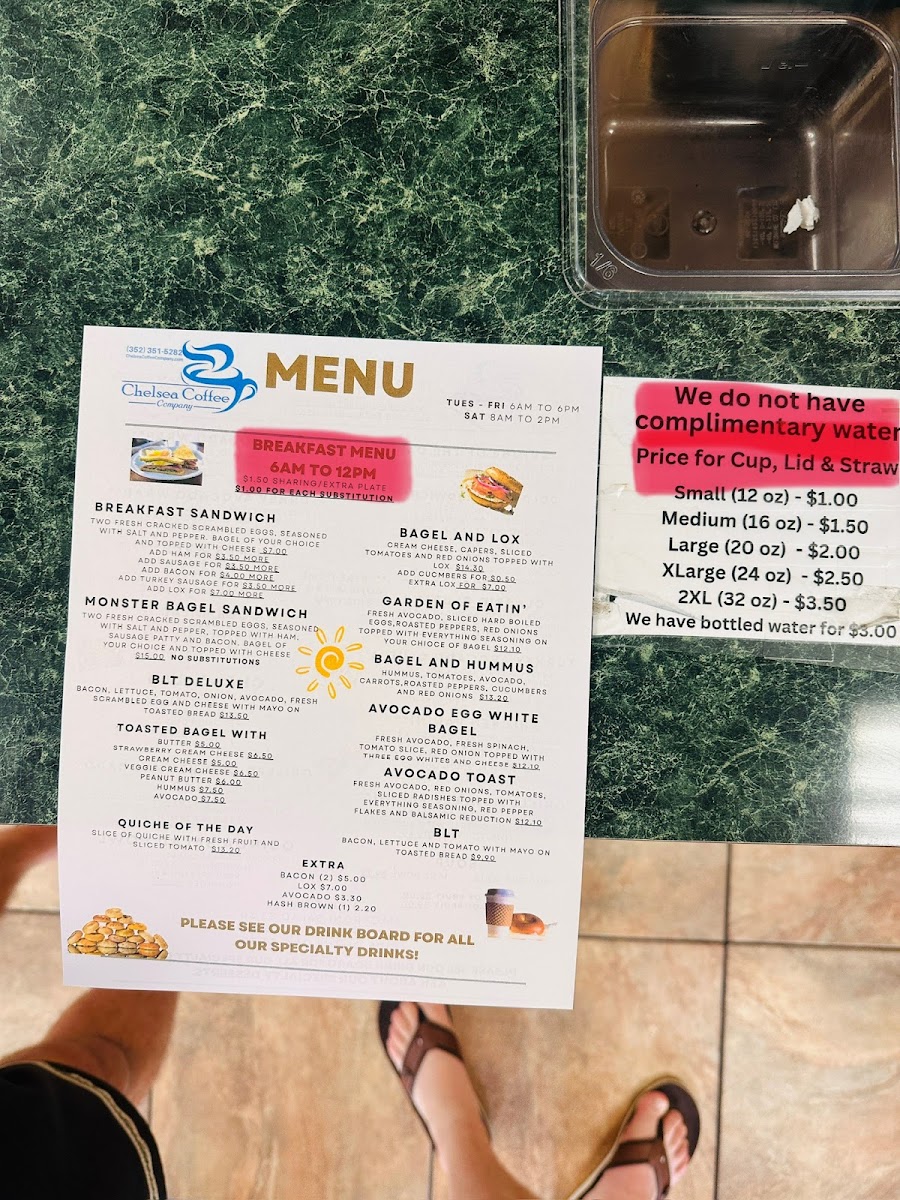 1/6
(352) 351-5282
ChelseaCoffeeCompany.com
Chelsea Coffee
Company
MENU
TUES - FRI 6AM TO 6PM
SAT 8AM TO 2PM
BREAKFAST MENU
6AM TO 12PM
$1.50 SHARING/EXTRA PLATE
$1.00 FOR EACH SUBSTITUTION
BREAKFAST SANDWICH
TWO FRESH CRACKED SCRAMBLED EGGS, SEASONED
WITH SALT AND PEPPER. BAGEL OF YOUR CHOICE
AND TOPPED WITH CHEESE $7.00
ADD HAM FOR $3.50 MORE
ADD SAUSAGE FOR $3.50 MORE
ADD BACON FOR $4.00 MORE
ADD TURKEY SAUSAGE FOR $3.50 MORE
ADD LOX FOR $7.00 MORE
MONSTER BAGEL SANDWICH
TWO FRESH CRACKED SCRAMBLED EGGS, SEASONED
WITH SALT AND PEPPER, TOPPED WITH HAM,
SAUSAGE PATTY AND BACON. BAGEL OF
YOUR CHOICE AND TOPPED WITH CHEESE
$15.00 NO SUBSTITUTIONS
BLT DELUXE
BACON, LETTUCE, TOMATO, ONION, AVOCADO, FRESH
SCRAMBLED EGG AND CHEESE WITH MAYO ON
TOASTED BREAD $13.50
TOASTED BAGEL WITH
BUTTER $5.00
STRAWBERRY CREAM CHEESE $6.50
CREAM CHEESE $5.00
VEGGIE CREAM CHEESE $6.50
PEANUT BUTTER $6.00
HUMMUS $7.50
AVOCADO $7.50
QUICHE OF THE DAY
SLICE OF QUICHE WITH FRESH FRUIT AND
SLICED TOMATO $13.20
BAGEL AND LOX
CREAM CHEESE, CAPERS, SLICED
TOMATOES AND RED ONIONS TOPPED WITH
LOX $14.30
ADD CUCMBERS FOR $0.50
EXTRA LOX FOR $7.00
GARDEN OF EATIN'
FRESH AVOCADO, SLICED HARD BOILED
EGGS,ROASTED PEPPERS, RED ONIONS
TOPPED WITH EVERYTHING SEASONING ON
YOUR CHIOCE OF BAGEL $12.10
BAGEL AND HUMMUS
HUMMUS, TOMATOES, AVOCADO,
CARROTS,ROASTED PEPPERS, CUCUMBERS
AND RED ONIONS $13.20
AVOCADO EGG WHITE
BAGEL
FRESH AVOCADO, FRESH SPINACH,
TOMATO SLICE, RED ONION TOPPED WITH
THREE EGG WHITES AND CHEESE $12.10
AVOCADO TOAST
FRESH AVOCADO, RED ONIONS, TOMATOES,
SLICED RADISHES TOPPED WITH
EVERYTHING SEASONING, RED PEPPER
FLAKES AND BALSAMIC REDUCTION $12.10
BLT
BACON, LETTUCE AND TOMATO WITH MAYO ON
TOASTED BREAD $9.90
EXTRA
BACON (2) $5.00
LOX $7.00
AVOCADO $3.30
HASH BROWN (1) 2.20
PLEASE SEE OUR DRINK BOARD FOR ALL
OUR SPECIALTY DRINKS!
We do not have
complimentary water
Price for Cup, Lid & Straw
Small (12 oz) - $1.00
Medium (16 oz) - $1.50
Large (20 oz) - $2.00
XLarge (24 oz) - $2.50
2XL (32 oz) - $3.50
We have bottled water for $3.00